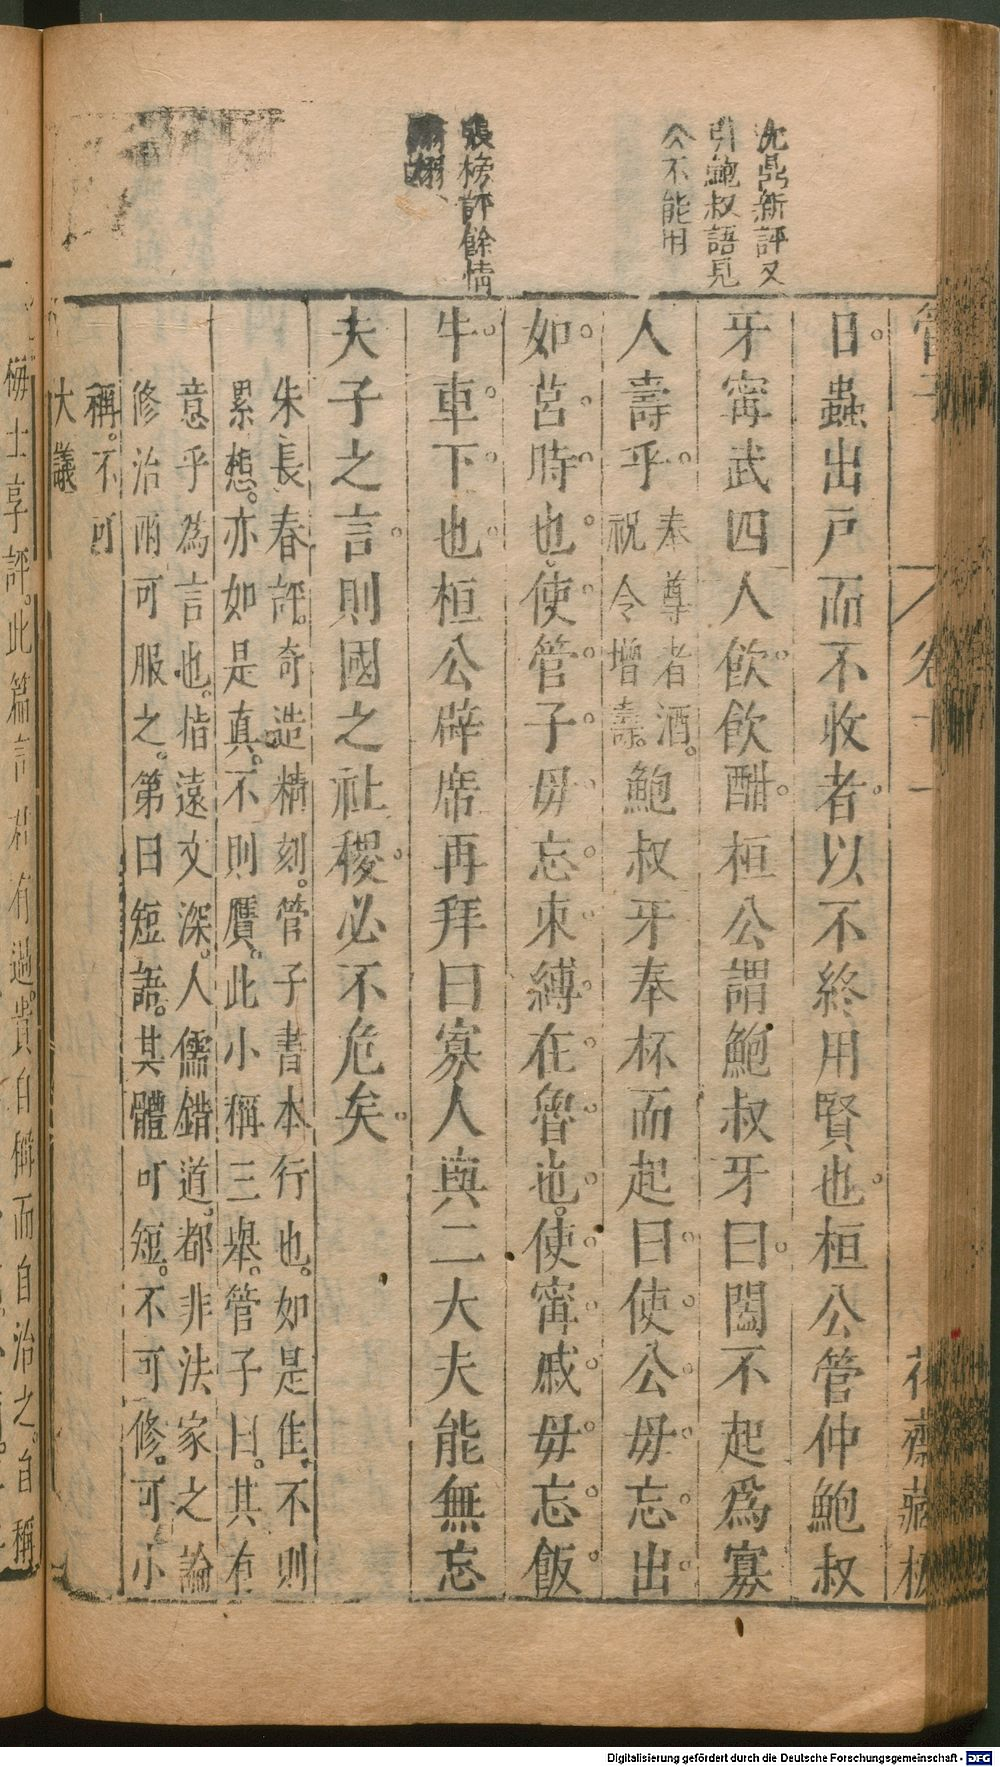 沈鼎新評又
引鮑叔語見
公不能用
張榜評餘情
管子
卷十一
花齋藏板
日。蟲出戶而不收者。以不終用賢也。桓公管仲鮑叔
牙甯武四人飲。飲酣。桓公謂鮑叔牙曰。闔不起爲寡
人壽乎。奉尊者酒。祝令增壽。鮑叔牙奉杯而起曰。使公毋忘出
如莒時也。使管子毋忘束縛在魯也。使甯戚毋忘飯
牛車下也。桓公辟席再拜曰寡人與二大夫能無忘
夫子之言。則國之社稷。必不危矣。
朱長春評。奇造精刻。管子書本行也。如是隹。不則
累想。亦如是真。不則贋。此小稱三舉。管子曰。其有
意乎爲言也。指遠文深。人儒錯道。都非法家之論
修治而可服之。第曰短語。其體可短。不可修。可小
稱。不可
大議
梅士享評。此篇言
有過。貴自稱而自治之。自稱
Digitalisierung gefördert durch die Deutsche Forschungsgemeinschaft - DFG